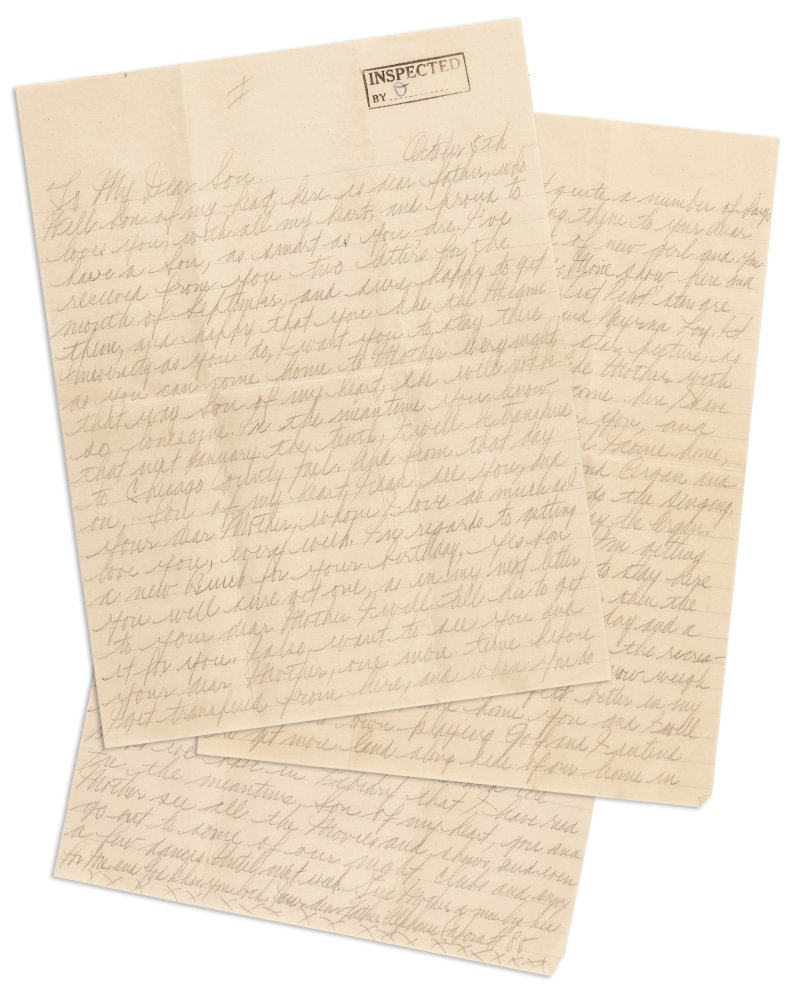 I
INSPECTED
BY
October 5th
To My Dear Son.
Well Son of my heart, here is dear father, who
loves you, with all my heart, and proud to
have a Son, as smart as you are. I've
received from you two letters for the
month of September, and sure happy to get
them, and happy that you like the Miami
University as you do, I want you to stay there
as you can come home to Mother every night
that way Son of my heart, she will not be
so lonesome. In the meantime you know
that next January the tenth, I will be transferd
to Chicago County Jail. And from that day
on, Son of my heart, I can see you, and
your dear Mother, whom I love as much as I
love you, every week. In regards to getting
a new Buick for your birthday. Yes Son
you will sure get one, as in my next letter
to your dear Mother I will tell her to get
it for you. I also want to see you and
your dear Mother, one more time before
I get transferd from here, and when you do
quite a number of songs
them to your dear
of new girl and you
Movie show here and
Test Pilot" stars are
and Myrna Loy. I
star picture, as
Mother with
come here I have
you, and
come home,
and Organ and
do the singing,
the Organ.
Im getting
to stay here
then the
day and a
the recrea-
now weigh
better in my
home you and I will
down playing Golf and I intend
to get more land along side of our home in
in Library that I have read
In the meantime, Son of my heart, you and
Mother see all the Movies and shows, and even
go out to some of our night clubs and enjoy
a few dances. Until next week. Give Mother a nice big kiss
for Me, and God bless you both, Your dear Father Alphonse Capone # 85